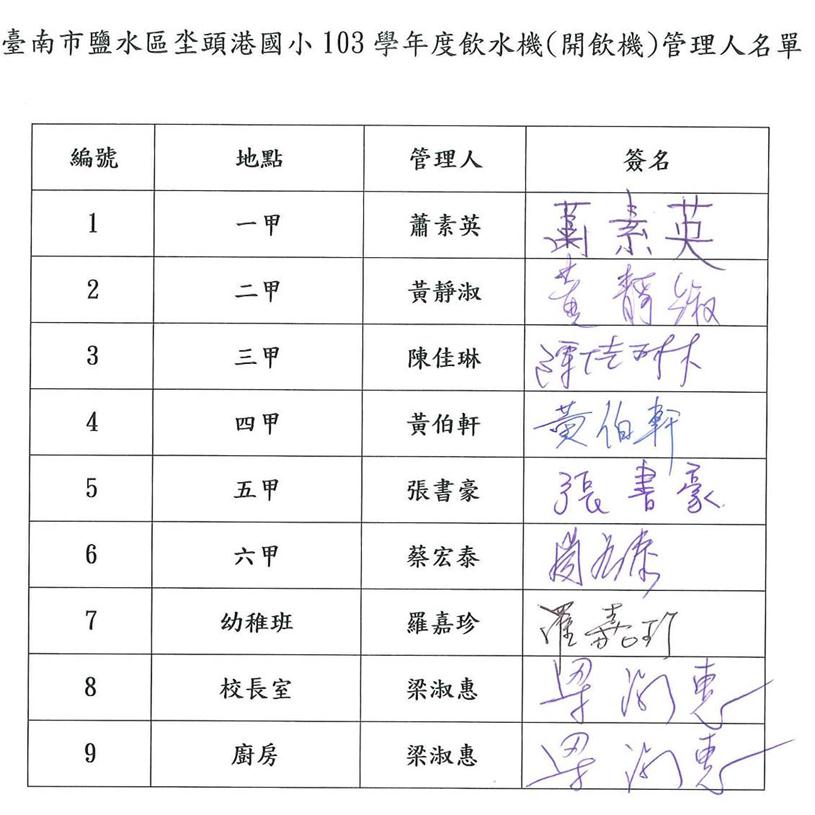 臺南市鹽水區坔頭港國小103學年度飲水機(開飲機)管理人名單
編號 地點 管理人 簽名
1 一甲 蕭素英 蕭素英
2 二甲 黃靜淑 黃靜淑
3 三甲 陳佳琳 陳佳琳
4 四甲 黃伯軒 黃伯軒
5 五甲 張書豪 張書豪
6 六甲 蔡宏泰
7 幼稚班 羅嘉珍 羅嘉珍
8 校長室 梁淑惠 梁淑惠
9 廚房 梁淑惠 梁淑惠